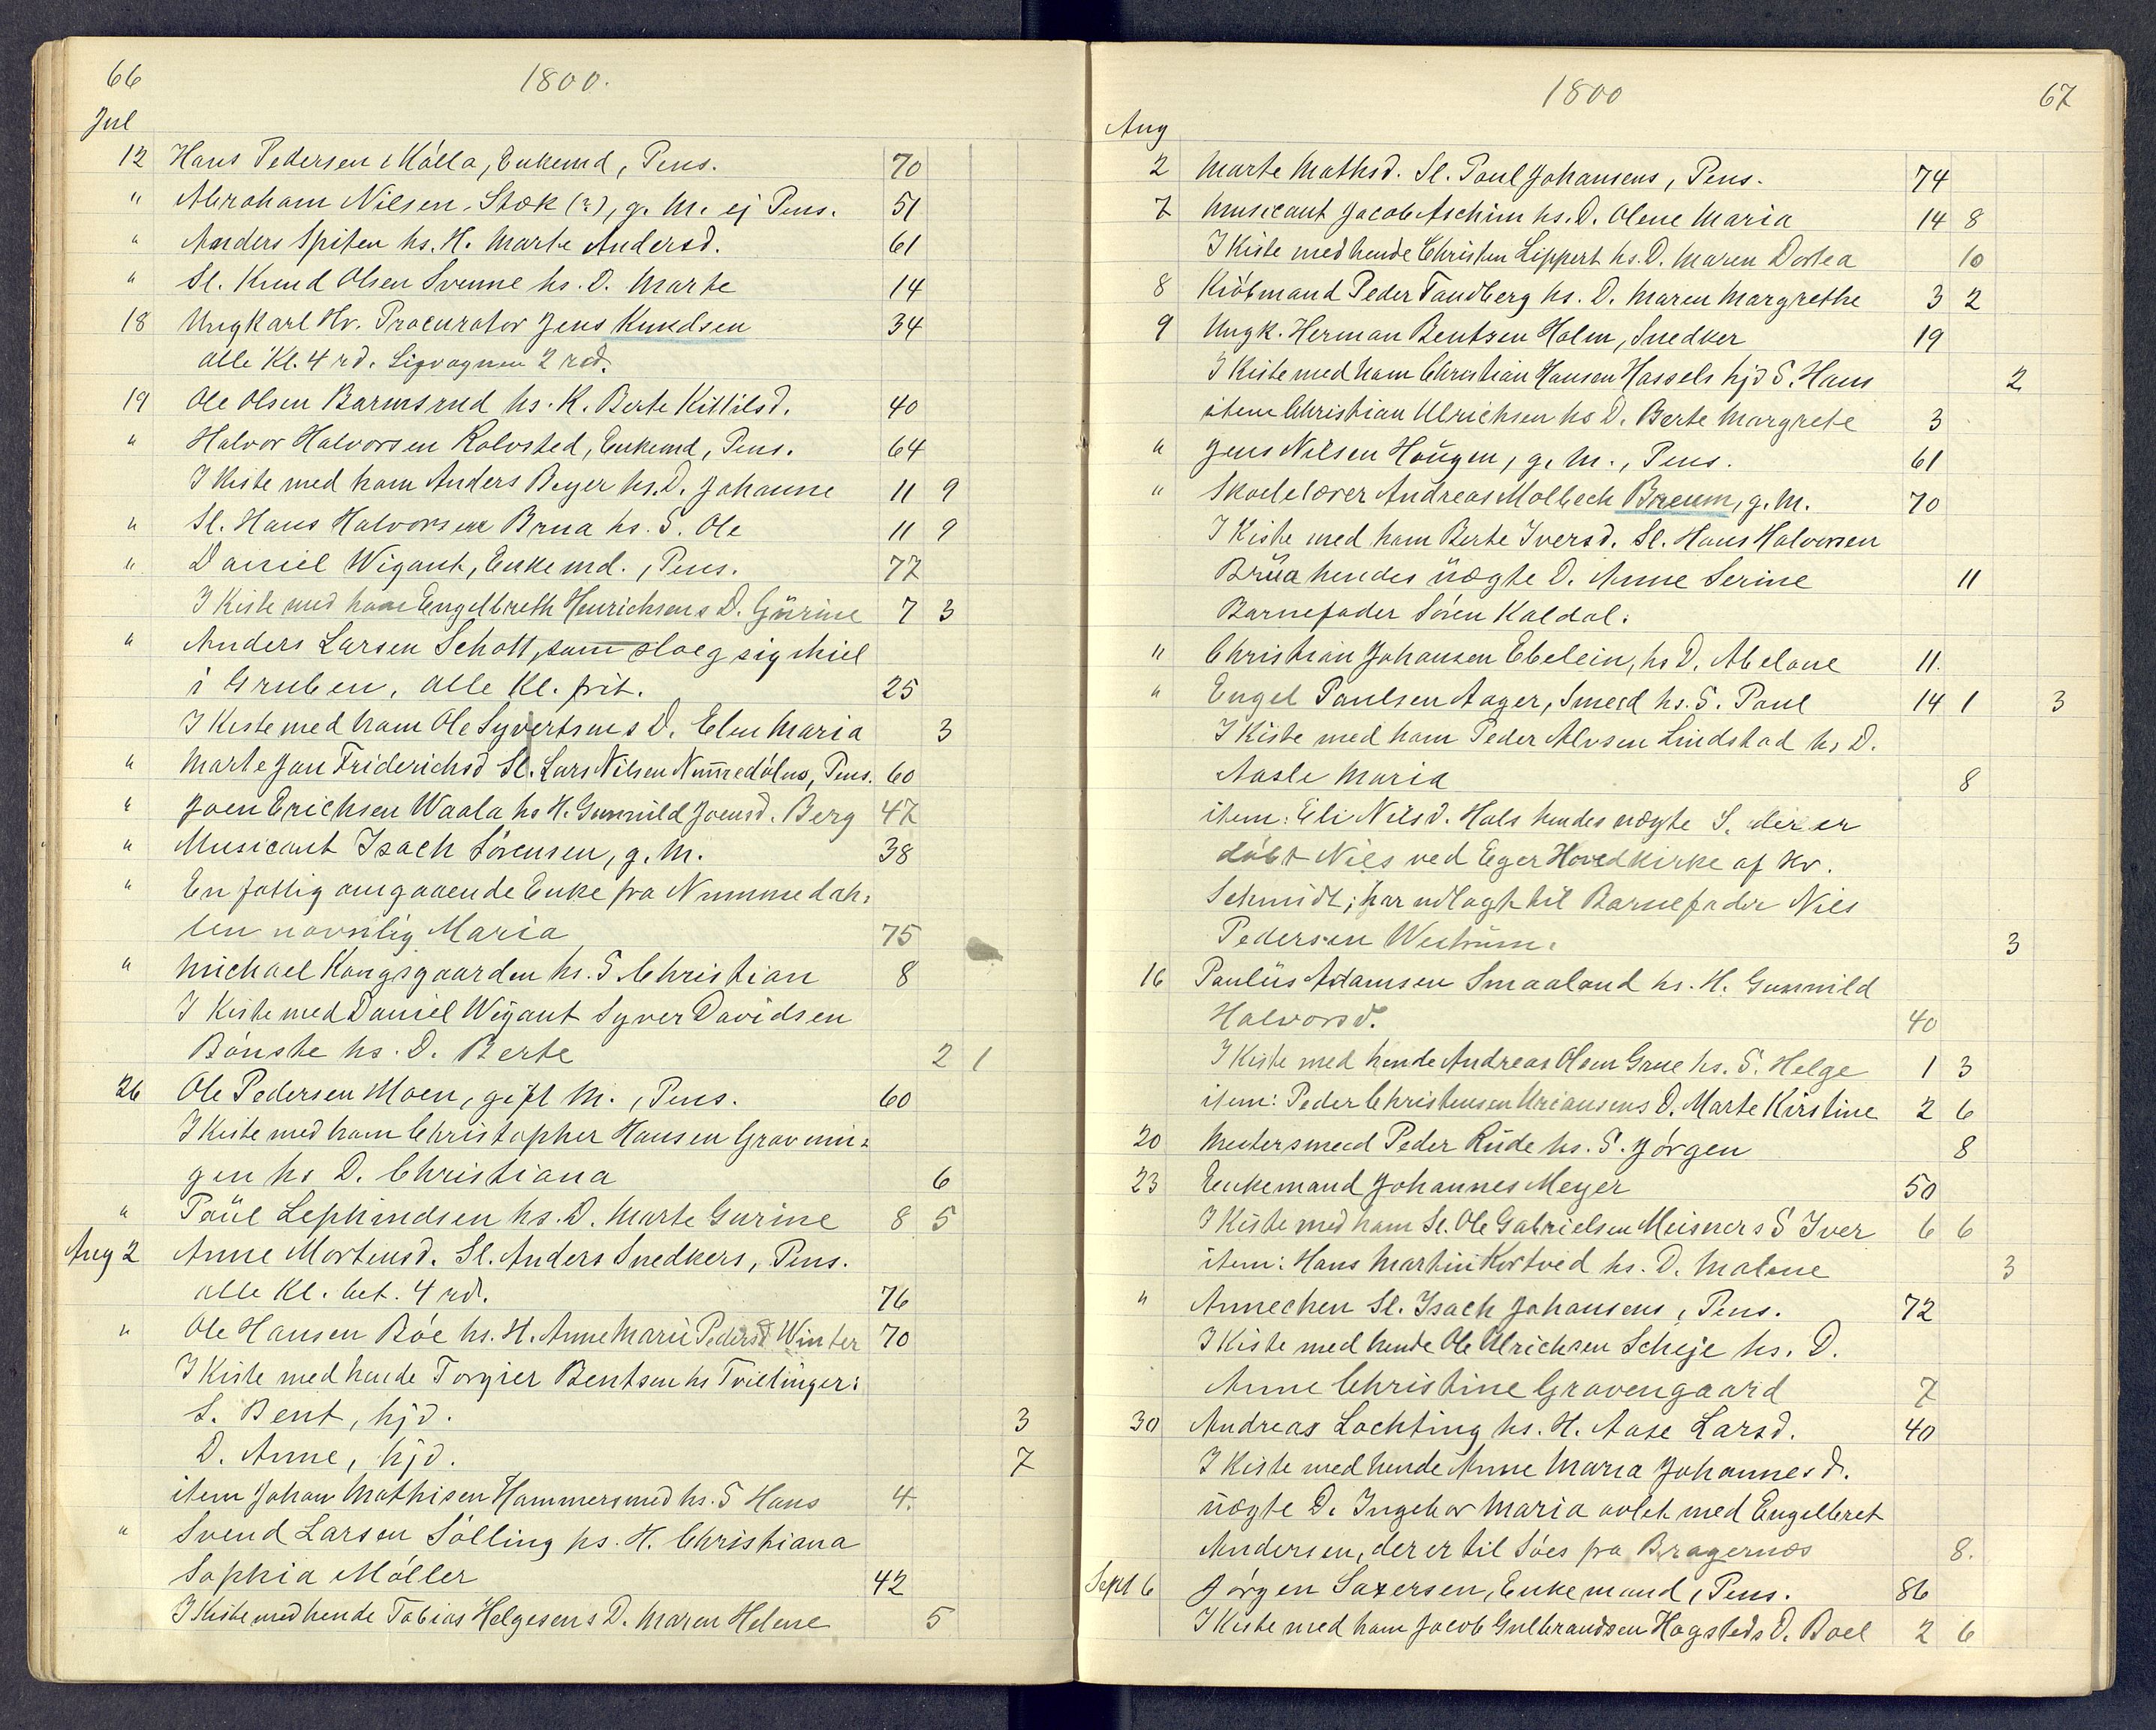 66
1800.
Jul
12 Hans Pedersen i Kólla, Enkemd, Pens. 70
" Abraham Nilsen Stæk (?), g. M. ej Pens. 51
" Anders Spiten hs. H. Marte Andersd. 61
" Sl. Knud Olsen Svenne hs. D. Marte 14
18 Ungkarl Hr. Procurator Jens Knudsen 34
alle Kl. 4 rd. Ligvagnen 2 rd.
19 Ole Olsen Barmsrud hs. K. Berte Kittilsd. 40
" Halvor Halvorsen Rolvsted, Enkemd, Pens. 64
I Kiste med ham Anders Beyer hs. D. Johanne 11 9
" Sl. Hans Halvorsen Brua hs. S. Ole 11 9
" Daniel Wigant, Enkemd., Pens. 77
I Kiste med ham Engelbreth Henrichsens D. Gürine 7 3
" Anders Larsen Schott, som sloeg sig ihiel
i Gruben, alle Kl. frit. 25
I Kiste med ham Ole Syvertsens D. Elen Maria 3
" Marte Jan Friderichsd Sl. Lars Nilsen Num̅edólus, Pens. 60
" Joen Erichsen Waala hs H. Gunnild Joensd. Berg 47
" Musicant Isach Sörensen, g. M. 38
" En fattig omgaaende Enke fra Nummedah-
len navnlig Maria 75
" Michael Kongsgaarden hs. S. Christian 8
I Kiste med Daniel Wigant Syver Davidsen
Bónske hs. D. Berte 2 1
26 Ole Pedersen Moen, gift M., Pens. 60
I Kiste med ham Christopher Hansen Gravenin-
gen hs D. Christiana 6
" Poül Lephindsen hs. D. Marte Gurine 8 5
Aug 2 Anne Mortensd. Sl. Anders Snedkers, Pens.
alle Kl. bet. 4 rd. 76
" Ole Hansen Bóe hs. H. Anne Marie Pedersd Winter 70
I Kiste med hende Torgier Bentsen hs Tvillinger:
S. Bent, hjd. 3
D. Anne, hjd. 7
item Johan Mathisen Hammersmed hs. S Hans 4.
" Svend Larsen Sólling hs. H. Christiana
Sophia Móller 42
I Kiste med hende Tobias Helgesens D. Maren Helene 5
1800
67
Aug
2 Marte Mathsd. Sl. Poul Johansens, Pens. 74
7 Musicant Jacob Aschim hs. D. Olene Maria 14 8
I Kiste med hende Christen Lippert hs. D. Maren Dortea 10
8 Kióbmand Peder Tandberg hs. D. Maren Margrethe 3 2
9 Ungk. Herman Bentsen Holm, Snedker 19
I Kiste med ham Christian Hansen Hassels hjd S. Hans 2
item Christian Ulrichsen hs D. Berte Margrete 3
" Jens Nilsen Haügen, g. M., Pens. 61
" Skoelelærer Andreas Molbech Breum, g. M. 70
I Kiste med ham Berte Iversd. Sl. Hans Halvorsen
Brüa hendes üægte D. Anne Serine 11
Barnefader Sóren Kaldal.
" Christian Johansen Ebelein, hs D. Abelone 11.
" Engel Paulsen Aager, Smed hs. S. Poul 14 1 3
I Kiste med ham Peder Alvsen Lindstad hs D.
Aasle Maria 8
item: Eli Nilsd. Hals hendes uægte S. der er
dóbt Niels ved Eger Hovedkirke af Hr.
Schmidt; har udlagt til Barnefader Niels
Pedersen Westrüm. 3
16 Paulüs Adamsen Smaaland hs. H. Gunnild
Halvorsd. 40
I Kiste med hende Andreas Olsen Grue hs. S. Helge 1 3
item: Peder Christensen Uriansens D. Marte Kirstine 2 6
20 Mestersmed Peder Rüde hs. S. Jórgen 8
23 Enkemand Johannes Meyer 50
I Kiste med ham Sl. Ole Gabrielsen Meisners S Iver 6 6
item: Hans Martin Kortved hs. D. Malene 3
" Annechen Sl. Isach Johansens, Pens. 72
I Kiste med hende Ole Ulrichsen Scheje hs. D.
Anne Christine Gravengaard 7
30 Andreas Lochting hs. H. Aase Larsd. 40
I Kiste med hende Anne Maria Johannesd.
üægte D. Ingebor Maria avlet med Engelbret
Andersen, der er til Sóes fra Bragernæs 8.
Sept 6 Jórgen Saxersen, Enkemand, Pens. 86
I Kiste med ham Jacob Gulbrandsen Hagsteds D. Boel 2 6